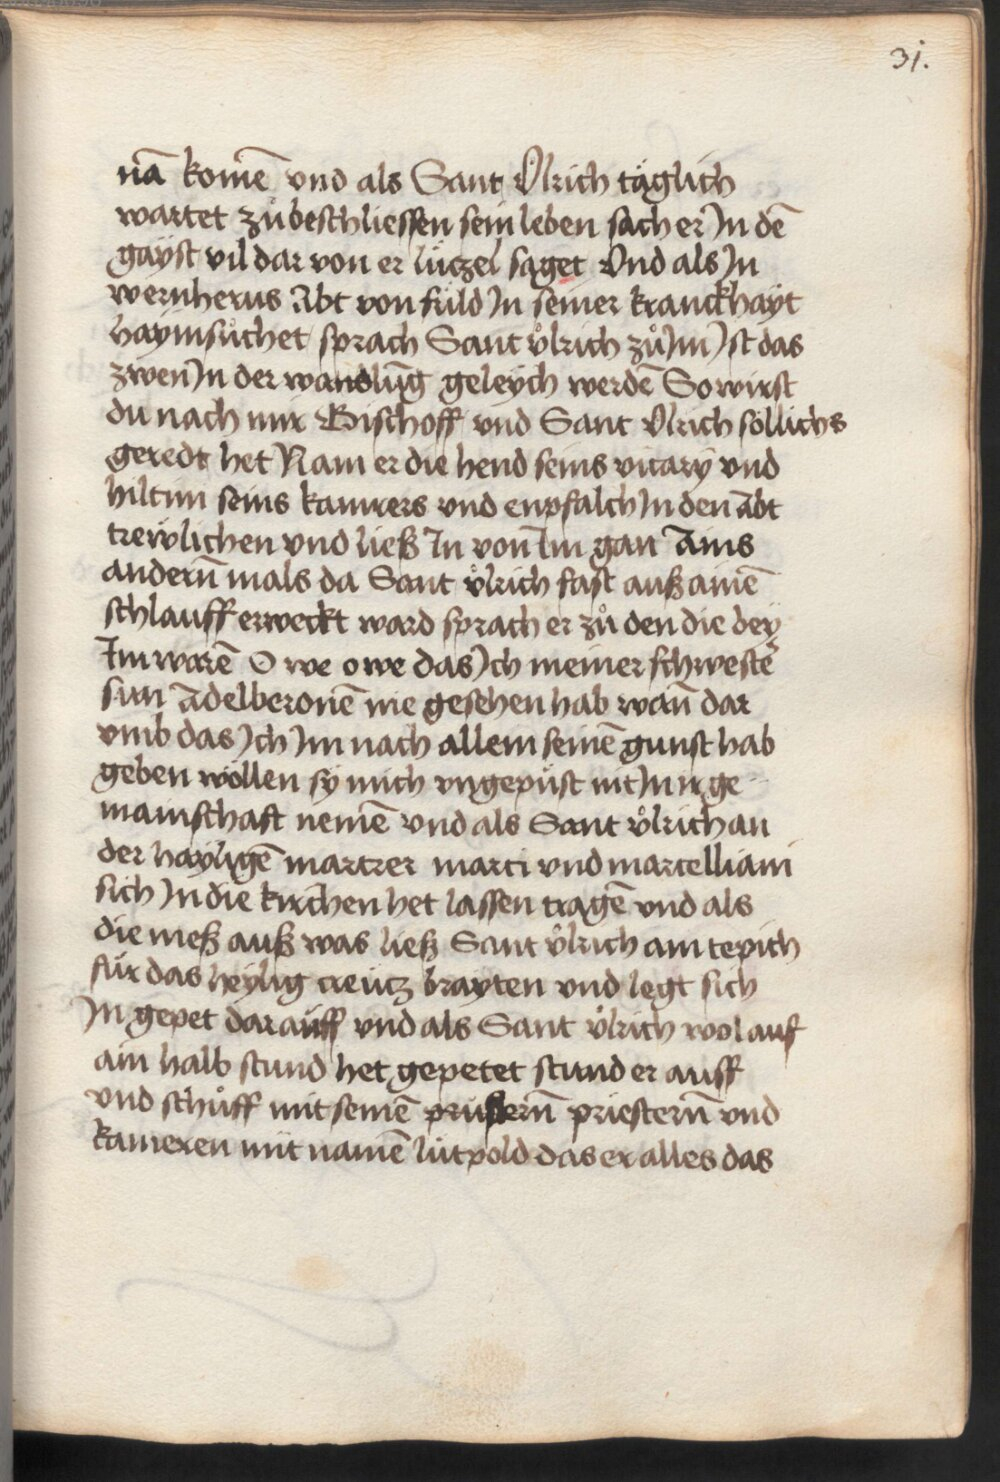 31.
nā komē vnd als Sant Vͦlrich täglich
wartet zuͦ beschliessen sein leben sach er Jn dē
gayst vil dar von er lützel saget Vnd als Jn
wernherus Abt von fuld Jn seiner kranckhayt
haymsuͦchet sprach Sant vͦlrich zuͦ Jm Jst das
zwen Jn der wandlūg geleych werdē So wirst
du nach mir Bischoff vnd Sant Vlrich söllichs
geredt het Nam er die hend seins vicary vnd
hiltini seins kamrers vnd enpfalch Jn den Abt
trewlichen vnd ließ Jn von Jm gan Ains
andern̄ mals da Sant vͦlrich fast auß ainē
schlauff erweckt ward sprach er zuͦ den die bey
Jm warē O we owe das Jch meiner schwestē
sun Adelberonē nie gesehen hab wan̄ dar
vmb das Jch Jm nach allem seinē gunst hab
geben wöllen sy mich vngepuͤst nit Jn ir ge
mainschaft nemē vnd als Sant vͦlrich an
der hayligē martrer marci vnd marcelliani
sich Jn die kirchen het lassen tragē vnd als
die meß auß was ließ Sant vͦlrich ain tepich
für das heylig creütz brayten vnd legt sich
Jn gepet dar auff vnd als Sant vͦlrich wol auf
ain halb stund het gepetet stund er auff
vnd schuͦff mit seinē pruͦdern̄ priestern̄ vnd
kameren mit namē lütpold das er alles das